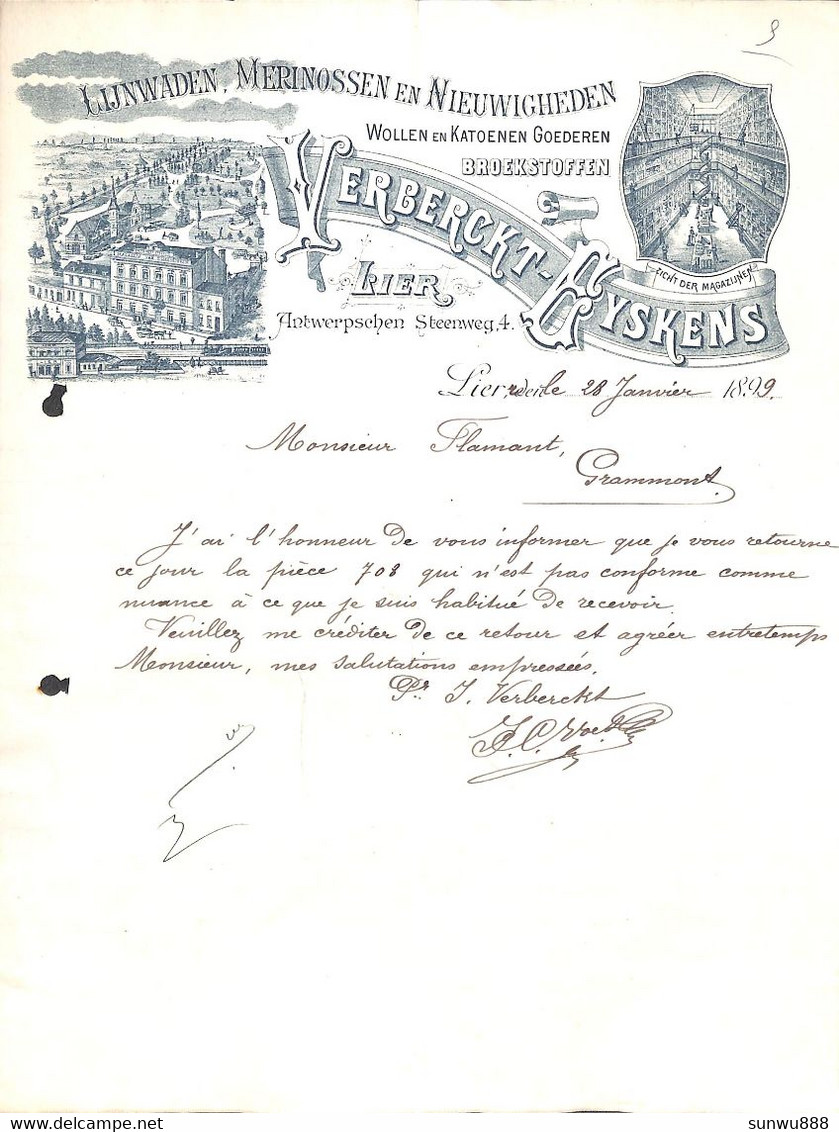 9
LIJNWADEN, MERINOSSEN EN NIEUWIGHEDEN
WOLLEN EN KATOENEN GOEDEREN
BROEKSTOFFEN
VERBERCKT-EYSKENS
LIER
Antwerpschen Steenweg, 4.
ZICHT DER MAGAZIJNEN
Lier, den le 28 Janvier 1899.
Monsieur Flamant,
Grammont.
J'ai l'honneur de vous informer que je vous retourne
ce jour la pièce 708 qui n'est pas conforme comme
nuance à ce que je suis habitué de recevoir.
Veuillez me créditer de ce retour et agréer entretemps
Monsieur, mes salutations empressées.
Pr J. Verberckt
sunwu888